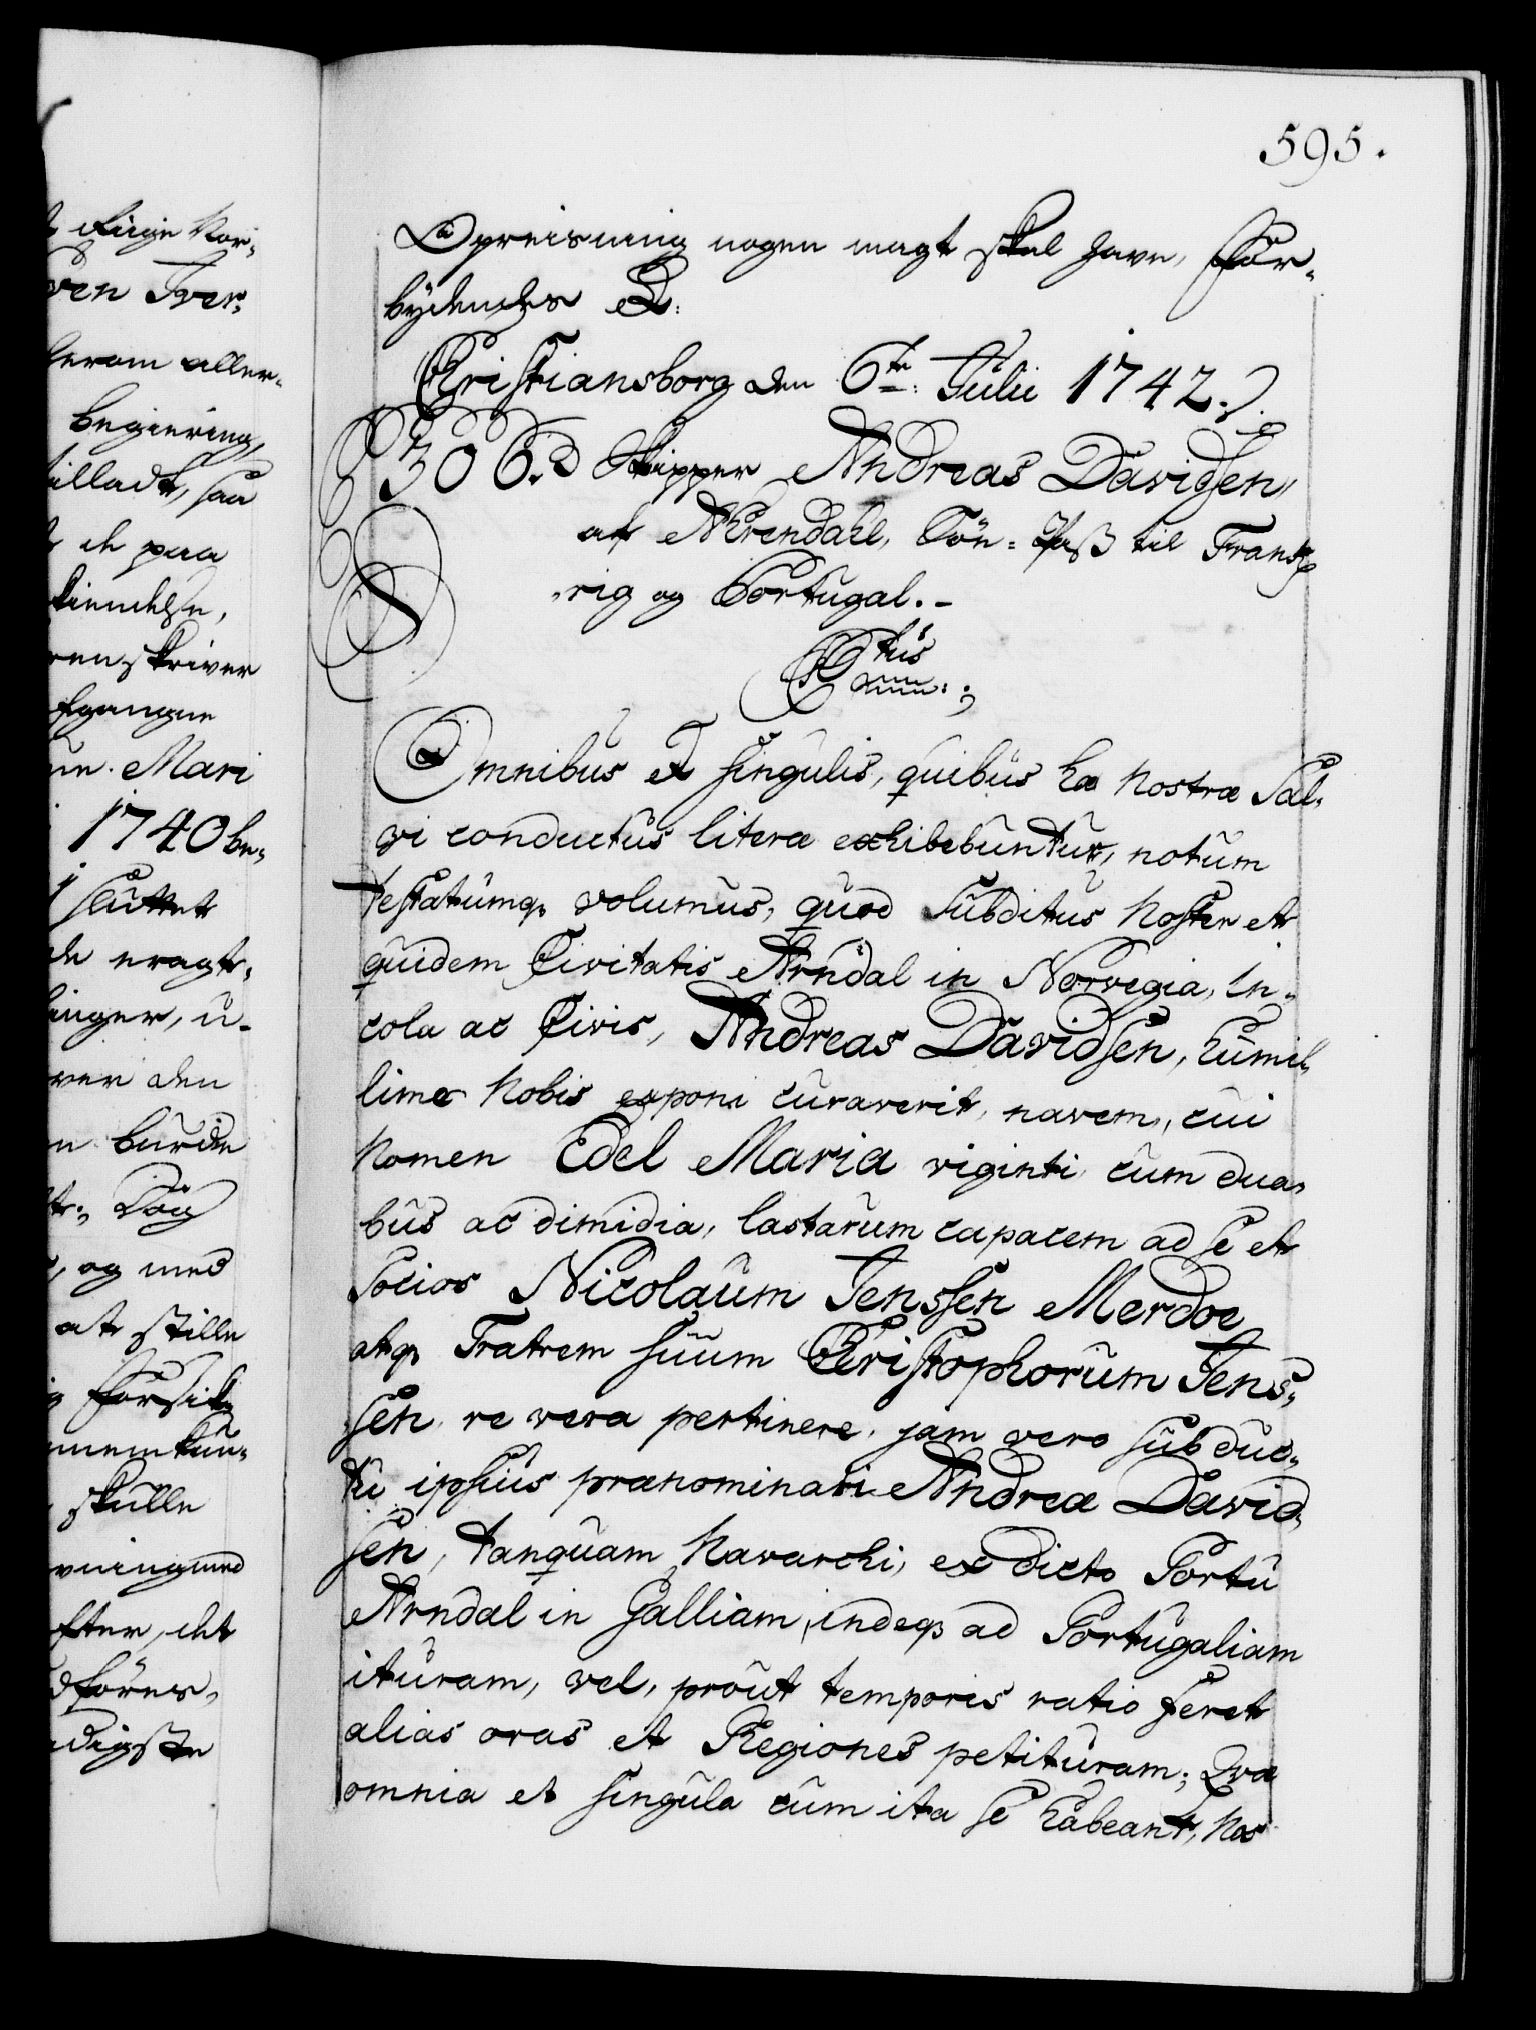 595.
Opreisning nogen magt skal have, For-
bydendes &:
Christiansborg den 6te: Julii 1742.
306. Skipper Andreas Davidsen,
af Ahrendahl, Söe-Pass til Frank-
rig og Portugal.-
Ctus
Omnibus et singulis, quibus hæ nostræ Sal-
vi conductus literæ exhibebuntur, notum
testatumqe volumus, quod Subditus Noster et
quidem Civitatis Arndal in Norvegia, In-
cola ac Civis, Andreas Davidsen, humil-
lime Nobis exponi curaverit, navem, cui
Nomen Edel Maria viginti cum dua-
bus ac dimidia, lastarum capacem ad se et
Socios Nicolaum Jenssen Merdoe
atqe Fratrem suum Christophorum Jens-
sen re vera pertinere, jam vero sub duc-
tu ipsius prænominati Andreæ David-
sen, tanquam Navarchi, ex dicto Portu
Arndal in Galliam, indeqe ad Portugaliam
ituram, vel, prout temporis ratio feret
alias oras et Regiones petituram; Qvæ
omnia et singula cum ita se habeant, Nos
ven Tver-
herom aller-
begiering,
tilladt, saa
de paa
kiendelse,
renskriver
Mari
1740 be-
sluttet
de eragt-
den
burde
og med
at stille
skulle
efter, det